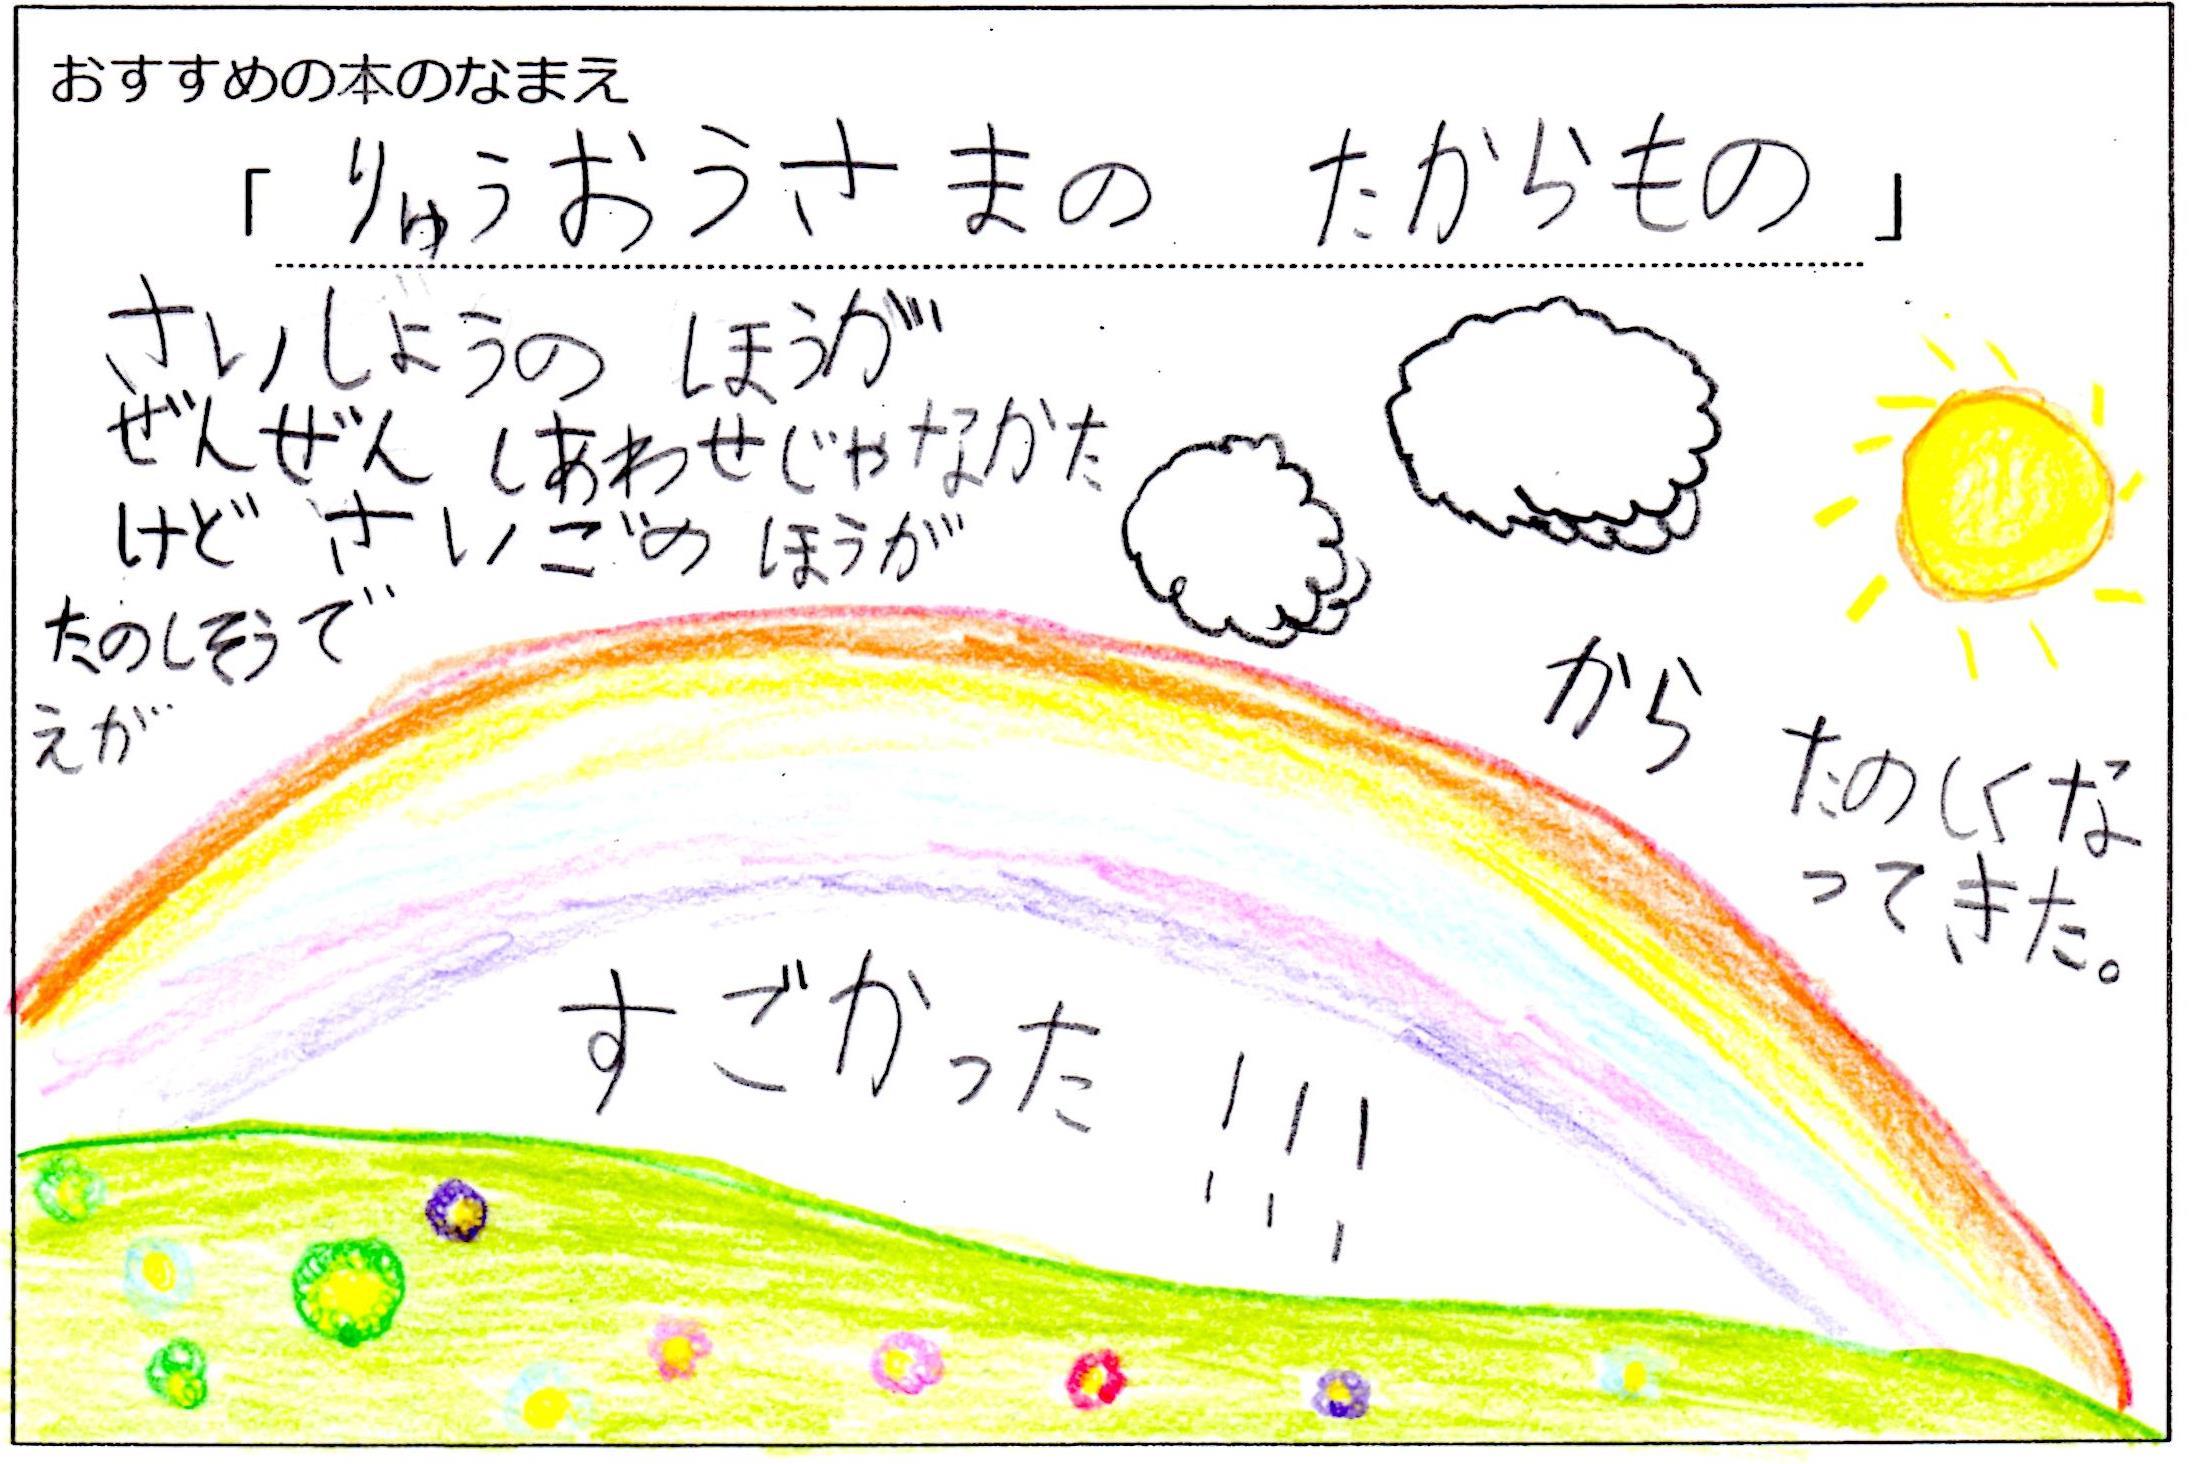 おすすめの本のなまえ
「りゅうおうさまの　たからもの」
さいしょうの ほうが
ぜんぜん しあわせじゃなかた
けど さいごの ほうが
たのしそうで
えが
から
たのしくな
ってきた。
すごかった!!!